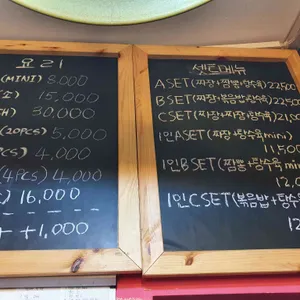 요리
(MINI) 8,000
15,000
30,000
(20PCS) 5,000
4,000
(4PCS) 4,000
16,000
+1,000
셋트메뉴
A SET(짜장+짬뽕+탕수육) 22,500
B SET(짬뽕+볶음밥+탕수육) 22,500
C SET(짜장+짜장+탕수육) 21,000
1인 A SET(짜장+탕수육mini
11,500
1인 B SET(짬뽕+탕수육mini
12,
1인 C SET(볶음밥+탕수
12,0